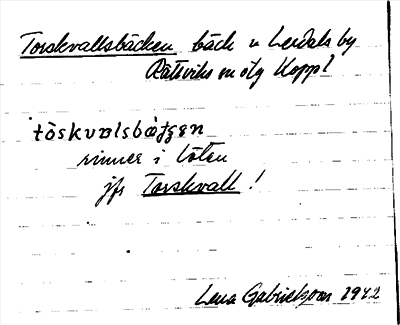 Torskvallsbäcken bäck n Lerdals by
Rättviks sn o lg Koppl
tòskvalsbætʃen
rinner i Töten
jfr Torskvall!
Lena Gabrielsson 1942